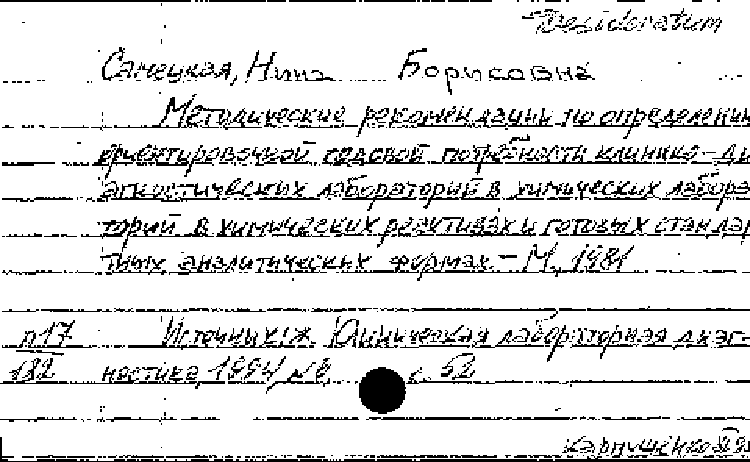 Desideratum
Санецкая, Нина Борисовна
Методические рекомендации по определению
ориентировочной годовой потребности клинико-ди
агностических лабораторий в химических лабора
торий в химических реактивах и готовых стандар
тных аналитических формах. - М., 1981
п17 Источник: ж. Клиническая лабораторная диаг-
182 ностика, 1994, №6, с. 52
Карпушенко